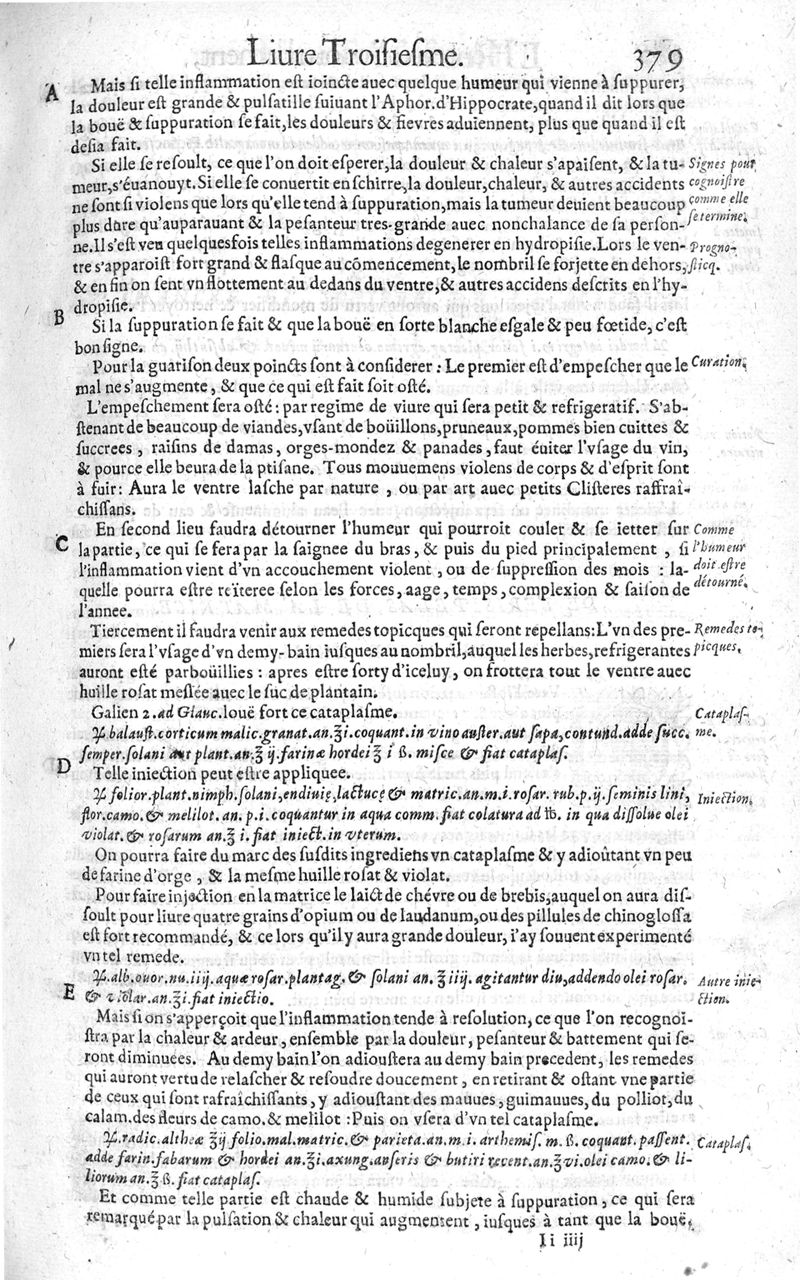 Liure Troisiesme. 379
A Mais si telle inflammation est ioincte auec quelque humeur qui vienne à suppurer,
la douleur est grande & pulsatille suiuant l'Aphor.d'Hippocrate,quand il dit lors que
la bouë & suppuration se fait,les douleurs & fievres aduiennent, plus que quand il est
desia fait.
Si elle se resoult, ce que l'on doit esperer,la douleur & chaleur s'apaisent, & la tu-
meur,s'éuanouyt.Si elle se conuertit en schirre,la douleur,chaleur, & autres accidents
ne sont si violens que lors qu'elle tend à suppuration,mais la tumeur deuient beaucoup
plus dure qu'auparauant & la pesanteur tres-grande auec nonchalance de sa person-
ne.Il s'est veu quelquesfois telles inflammations degenerer en hydropisie.Lors le ven-
tre s'apparoist fort grand & flasque au cõmencement,le nombril se forjette en dehors,
& en fin on sent vn flottement au dedans du ventre,& autres accidens descrits en l'hy-
dropisie.
Signes pour
cognoistre
comme elle
se termine.
Progno-
sticq.
B Si la suppuration se fait & que la bouë en sorte blanche esgale & peu fœtide, c'est
bon signe.
Pour la guarison deux poincts sont à considerer : Le premier est d'empescher que le
mal ne s'augmente, & que ce qui est fait soit osté.
Curation.
L'empeschement sera osté : par regime de viure qui sera petit & refrigeratif. S'ab-
stenant de beaucoup de viandes,vsant de boüillons,pruneaux,pommes bien cuittes &
succrees, raisins de damas, orges-mondez & panades, faut éuiter l'vsage du vin,
& pource elle beura de la ptisane. Tous mouuemens violens de corps & d'esprit sont
à fuir: Aura le ventre lasche par nature, ou par art auec petits Clisteres raffraî-
chissans.
C En second lieu faudra détourner l'humeur qui pourroit couler & se ietter sur
la partie, ce qui se fera par la saignee du bras, & puis du pied principalement, si
l'inflammation vient d'vn accouchement violent, ou de suppression des mois : la-
quelle pourra estre reïteree selon les forces, aage, temps, complexion & saison de
l'annee.
Comme
l'humeur
doit estre
détourné.
Tiercement il faudra venir aux remedes topicques qui seront repellans:L'vn des pre-
miers sera l'vsage d'vn demy-bain iusques au nombril,auquel les herbes,refrigerantes
auront esté parboüillies : apres estre sorty d'iceluy, on frottera tout le ventre auec
huille rosat meslée auec le suc de plantain.
Remedes to-
picques.
Galien 2. ad Glauc. louë fort ce cataplasme.
℞. balaust.corticum malic.granat.an.℥i.coquant.in vino auster.aut sapa,contund.adde succ.
semper.solani aut plant.an.℥ ij.farinæ hordei ℥ i ß. misce & fiat cataplas.
Cataplas-
me.
D Telle iniection peut estre appliquee.
℞ folior.plant.nimph.solani,endiuię,lactucę & matric.an.m.i.rosar. rub.p.ij.seminis lini,
flor.camo.& melilot. an. p.i.coquantur in aqua comm.fiat colatura ad ℔. in qua dissolue olei
violat.& rosarum an.℥ i.fiat iniect.in vterum.
Iniection.
On pourra faire du marc des susdits ingrediens vn cataplasme & y adioûtant vn peu
de farine d'orge, & la mesme huille rosat & violat.
Pour faire injection en la matrice le laict de chévre ou de brebis,auquel on aura dis-
soult pour liure quatre grains d'opium ou de laudanum,ou des pillules de chinoglossa
est fort recommandé, & ce lors qu'il y aura grande douleur, i'ay souuent experimenté
vn tel remede.
℞. alb.ouor.nu.iiij.aquæ rosar.plantag.& solani an. ℥ iiij. agitantur diu,addendo olei rosar.
E & violar.an.℥i.fiat iniectio.
Autre inie-
ction.
Mais si on s'apperçoit que l'inflammation tende à resolution, ce que l'on recognoi-
stra par la chaleur & ardeur, ensemble par la douleur, pesanteur & battement qui se-
ront diminuées. Au demy bain l'on adioustera au demy bain precedent, les remedes
qui auront vertu de relascher & resoudre doucement, en retirant & ostant vne partie
de ceux qui sont rafraîchissants, y adioustant des mauues, guimauues, du polliot, du
calam.des fleurs de camo.& melilot :Puis on vsera d'vn tel cataplasme.
℞.radic.altheæ ℥ij folio.mal.matric.& parieta.an.m.i. arthemis. m. ß. coquant.passent.
adde farin.fabarum & hordei an.℥i.axung.anseris & butiri recent.an.℥vi.olei camo.& li-
liorum an.℥ ß. fiat cataplas.
Cataplas.
Et comme telle partie est chaude & humide subjete à suppuration, ce qui sera
remarqué par la pulsation & chaleur qui augmentent, iusques à tant que la bouë,
Ii iiij